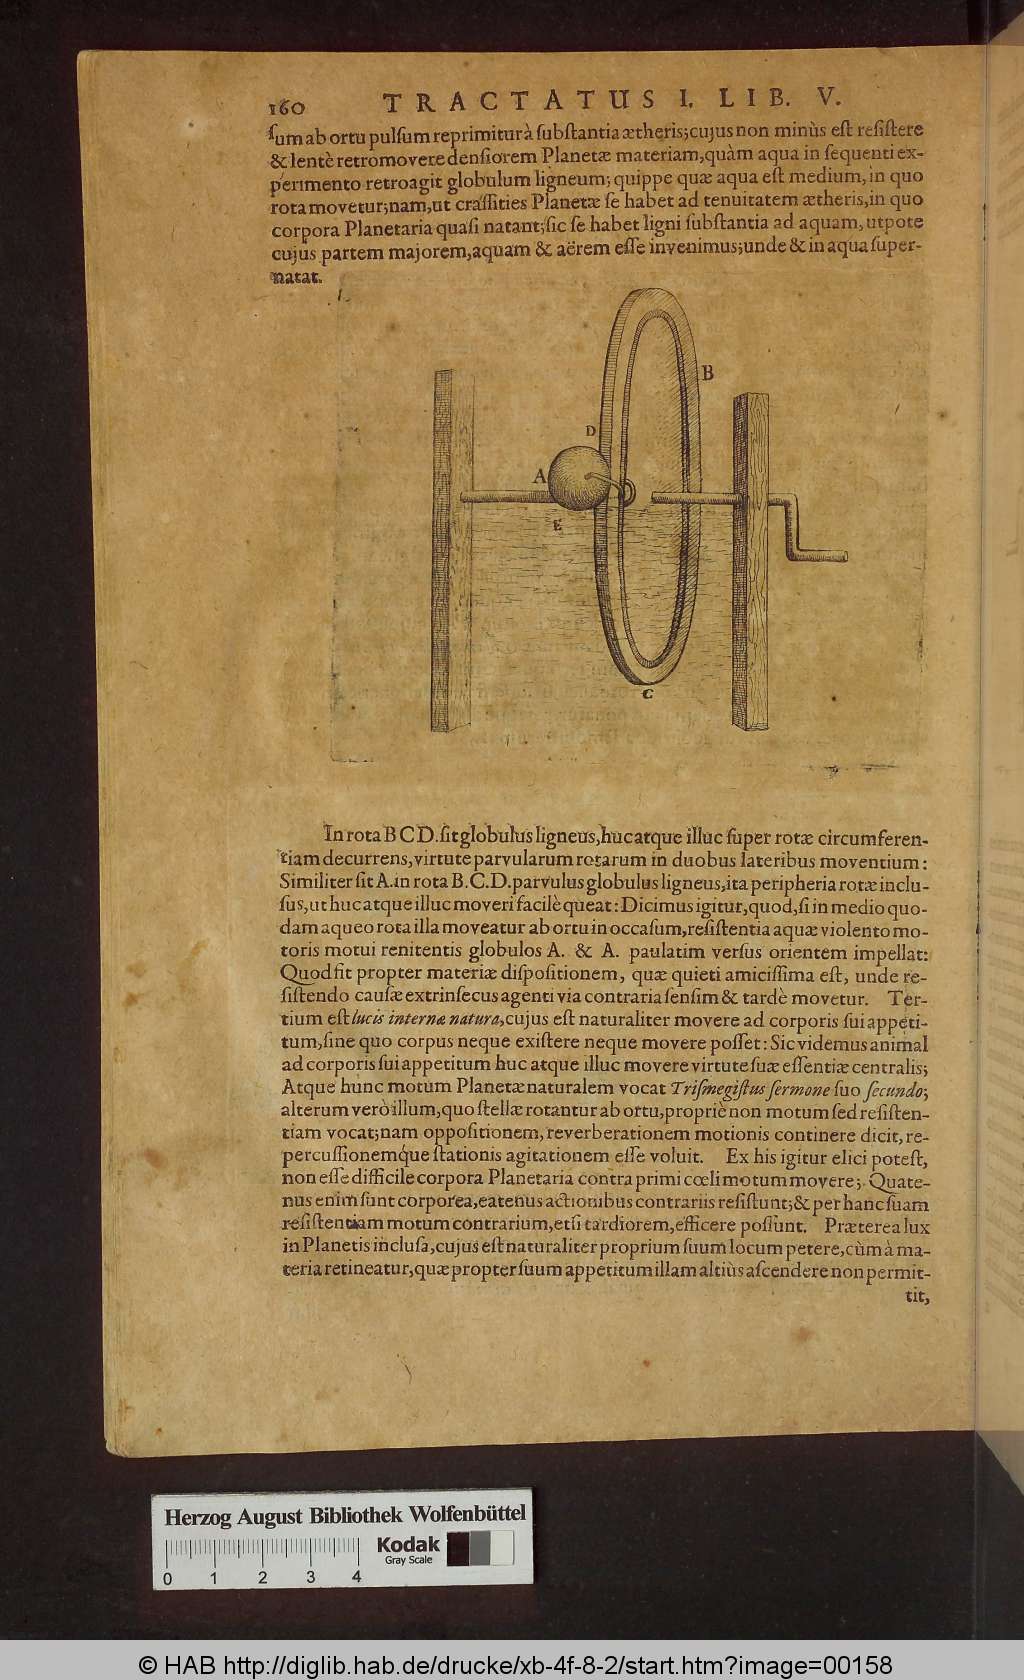 160 TRACTATUS I. LIB. V.
sum ab ortu pulsum reprimitur à substantia ætheris; cujus non minùs est resistere
& lentè retromovere densiorem Planetæ materiam, quàm aqua in sequenti ex-
perimento retroagit globulum ligneum; quippe quæ aqua est medium, in quo
rota movetur; nam, ut crassities Planetæ se habet ad tenuitatem ætheris, in quo
corpora Planetaria quasi natant; sic se habet ligni substantia ad aquam, utpote
cujus partem majorem, aquam & aërem esse invenimus; unde & in aqua super-
natat.
B
D
A
E
C
In rota B C D. sit globulus ligneus, huc atque illuc super rotæ circumferen-
tiam decurrens, virtute parvularum rotarum in duobus lateribus moventium:
Similiter sit A. in rota B. C. D. parvulus globulus ligneus, ita peripheria rotæ inclu-
sus, ut huc atque illuc moveri facilè queat: Dicimus igitur, quod, si in medio quo-
dam aqueo rota illa moveatur ab ortu in occasum, resistentia aquæ violento mo-
toris motui renitentis globulos A. & A. paulatim versus orientem impellat:
Quod fit propter materiæ dispositionem, quæ quieti amicissima est, unde re-
sistendo causæ extrinsecus agenti via contraria sensim & tardè movetur. Ter-
tium est lucis internæ natura, cujus est naturaliter movere ad corporis sui appeti-
tum, sine quo corpus neque existere neque movere posset: Sic videmus animal
ad corporis sui appetitum huc atque illuc movere virtute suæ essentiæ centralis;
Atque hunc motum Planetæ naturalem vocat Trismegistus sermone suo secundo;
alterum verò illum, quo stellæ rotantur ab ortu, propriè non motum sed resisten-
tiam vocat; nam oppositionem, reverberationem motionis continere dicit, re-
percussionemque stationis agitationem esse voluit. Ex his igitur elici potest,
non esse difficile corpora Planetaria contra primi cœli motum movere; Quate-
nus enim sunt corporea, eatenus actionibus contrariis resistunt; & per hanc suam
resistentiam motum contrarium, etsi tardiorem, efficere possunt. Præterea lux
in Planetis inclusa, cujus est naturaliter proprium suum locum petere, cùm à ma-
teria retineatur, quæ propter suum appetitum illam altiùs ascendere non permit-
tit,
Herzog August Bibliothek Wolfenbüttel
Kodak
Gray Scale
0 1 2 3 4
© HAB http://diglib.hab.de/drucke/xb-4f-8-2/start.htm?image=00158